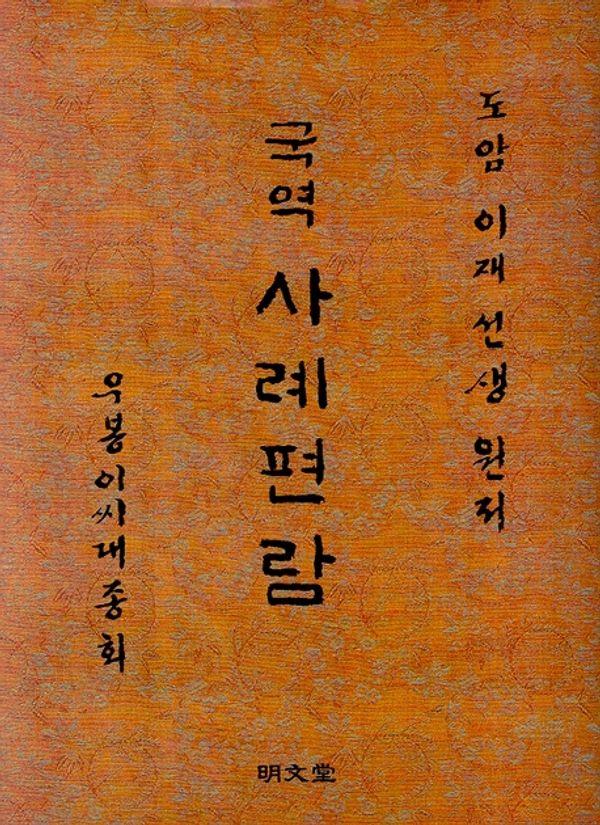 도암 이재 선생 원저
국역 사례편람
우봉이씨대종회
明文堂